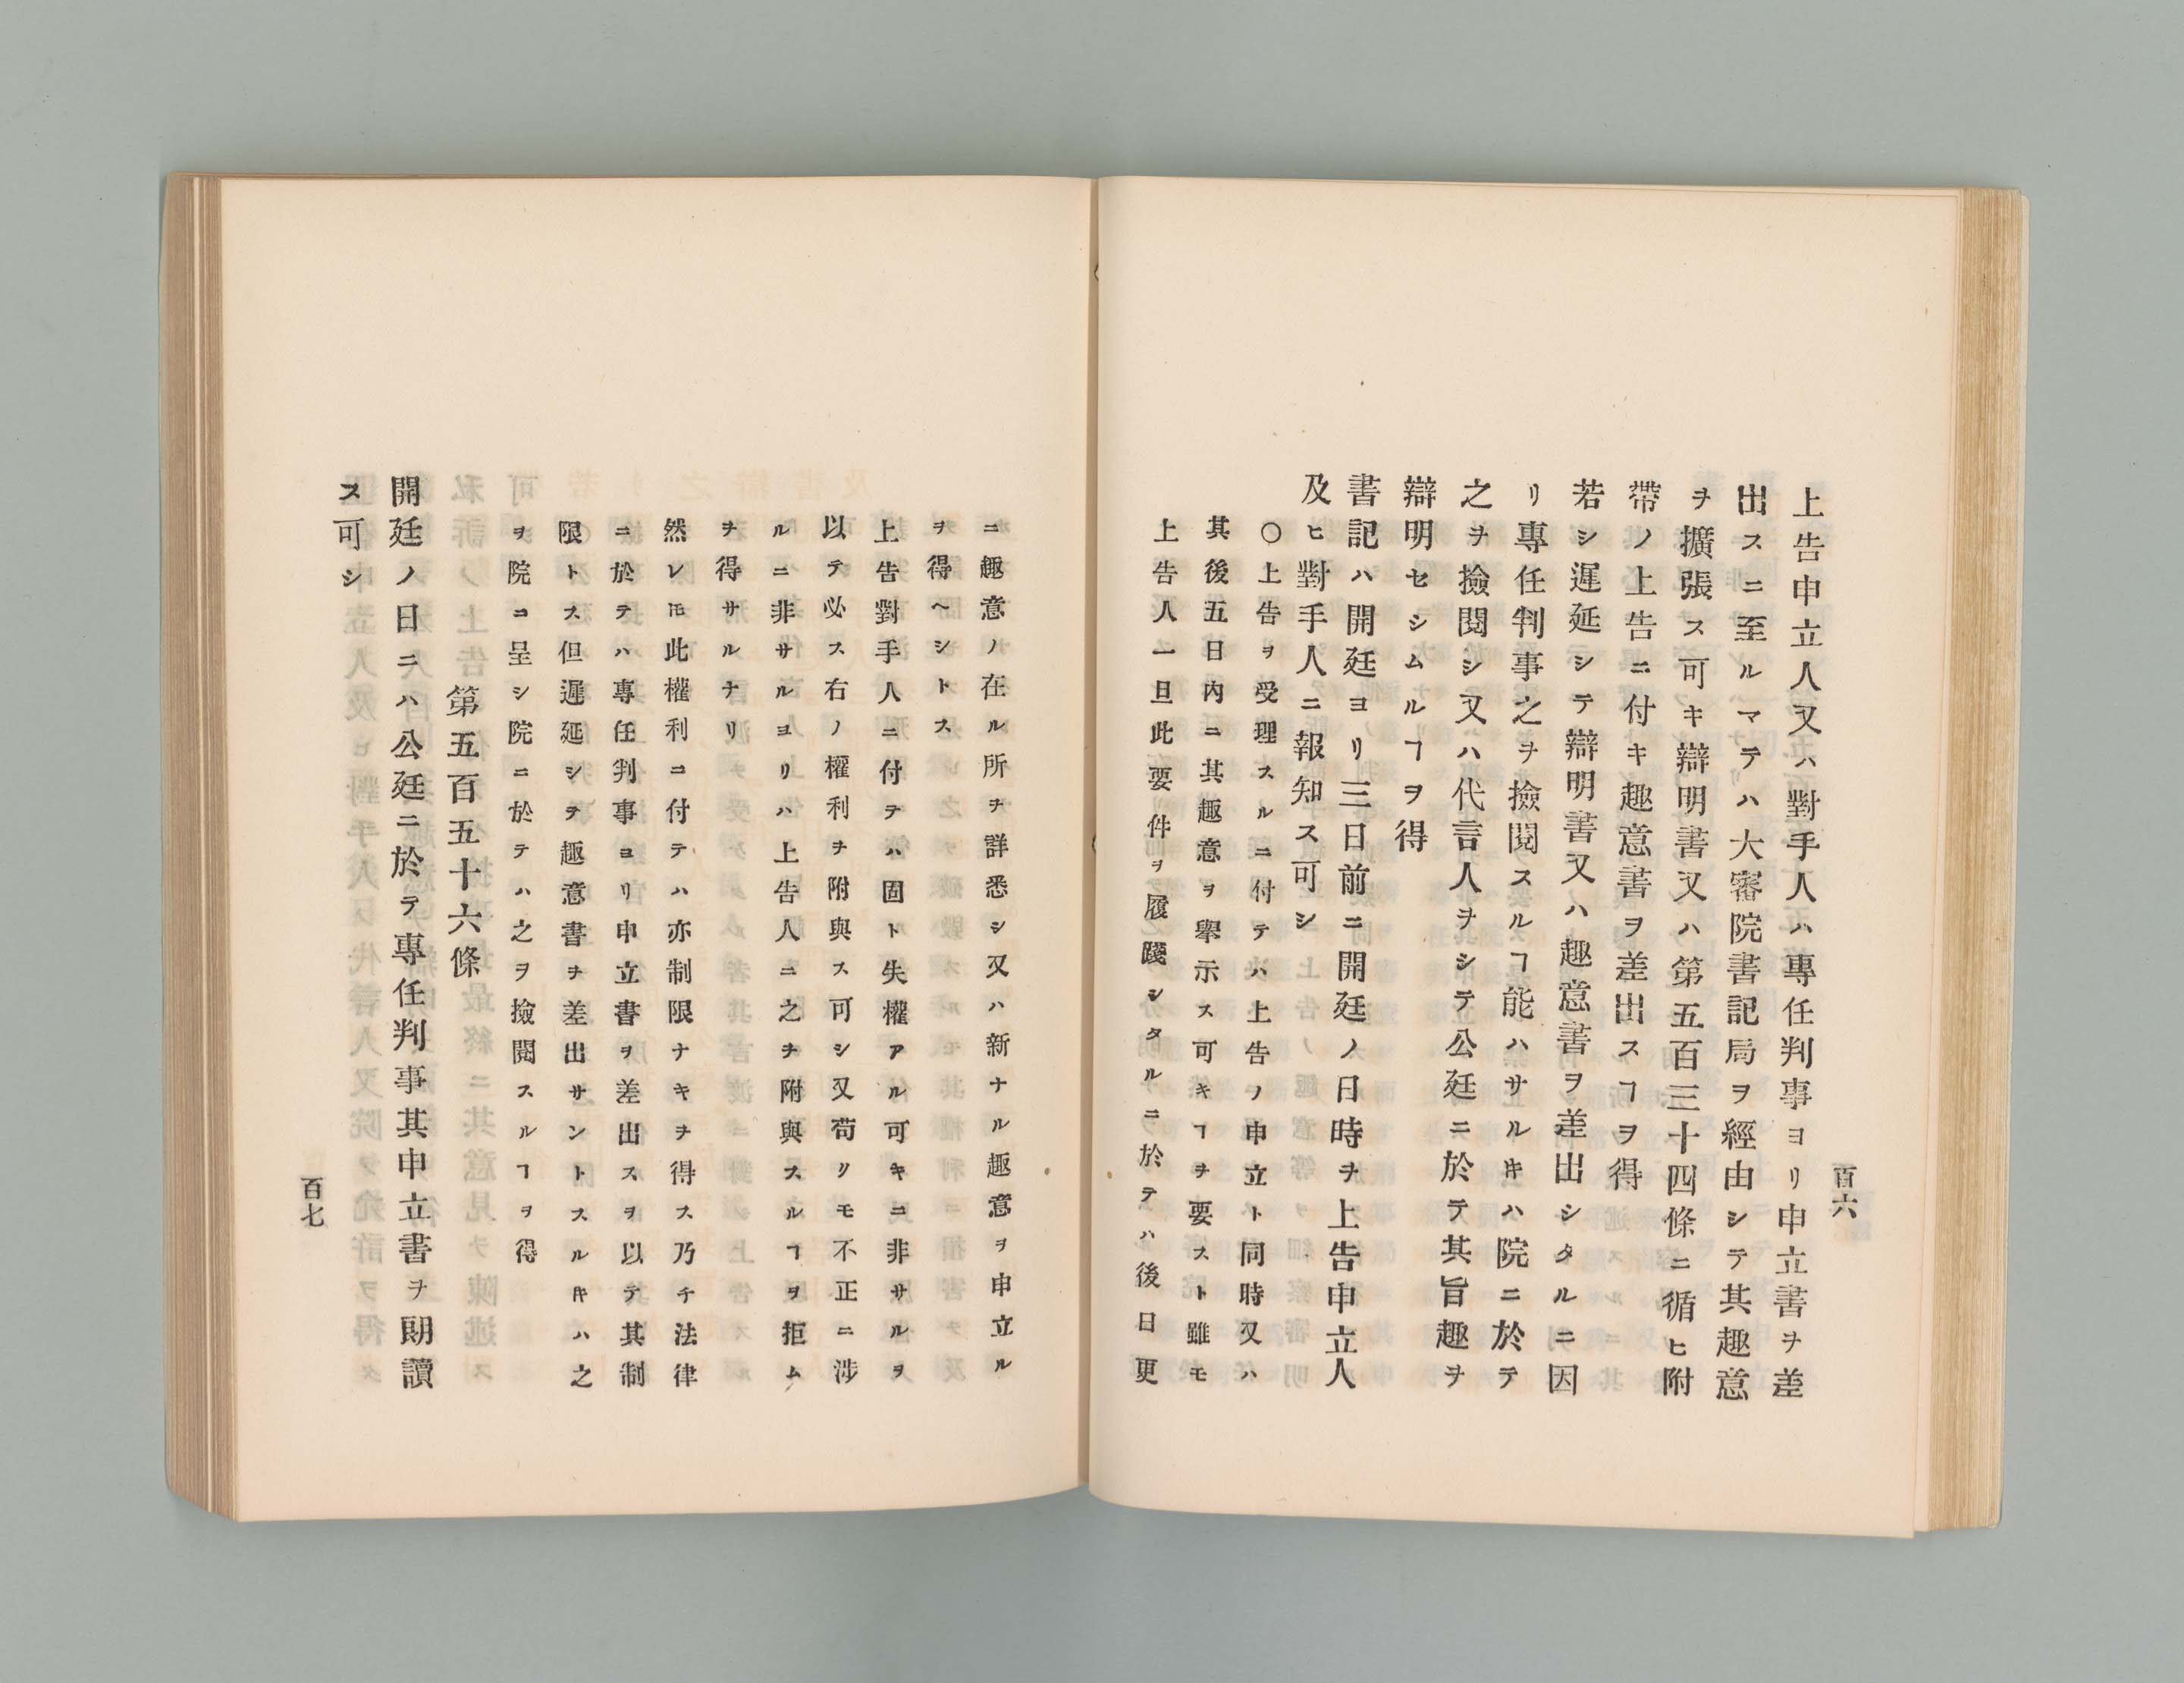 百六
上告申立人又ハ對手人ハ專任判事ヨリ申立書ヲ差
出スニ至ルマテハ大審院書記局ヲ經由シテ其趣意
ヲ擴張ス可キ辯明書又ハ第五百三十四條ニ循ヒ附
帶ノ上告ニ付キ趣意書ヲ差出スヿヲ得
若シ遲延シテ辯明書又ハ趣意書ヲ差出シタルニ因
リ專任判事之ヲ撿閱スルヿ能ハサルキハ院ニ於テ
之ヲ撿閱シ又ハ代言人ヲシテ公廷ニ於テ其旨趣ヲ
辯明セシムルヿヲ得
書記ハ開廷ヨリ三日前ニ開廷ノ日時ヲ上告申立人
及ヒ對手人ニ報知ス可シ
〇上告ヲ受理スルニ付テハ上告ノ申立ト同時又ハ
其後五日內ニ其趣意ヲ擧示ス可キヿヲ要スト雖モ
上告人一旦此要件ヲ履踐シタルニ於テハ後日更
ニ趣意ノ在ル所ヲ詳悉シ又ハ新ナル趣意ヲ申立ル
ヲ得ヘシトス
上告對手人ニ付テハ固ト失權アル可キニ非サルヲ
以テ必ス右ノ權利ヲ附與ス可シ又苟リモ不正ニ涉
ルニ非サルヨリハ上告人ニ之ヲ附與スルヿヲ拒ム
ヲ得サルナリ
然レ𪜈此權利コ付テハ亦制限ナキヲ得ス乃チ法律
ニ於テハ專任判事ヨリ申立書ヲ差出スヲ以テ其制
限トス但遲延シテ趣意書ヲ差出サントスルキハ之
ヲ院コ呈シ院ニ於テハ之ヲ撿閱スルヿヲ得
第五百五十六條
開廷ノ日ニハ公廷ニ於テ專任判事其申立書ヲ朗讀
ス可シ
百七